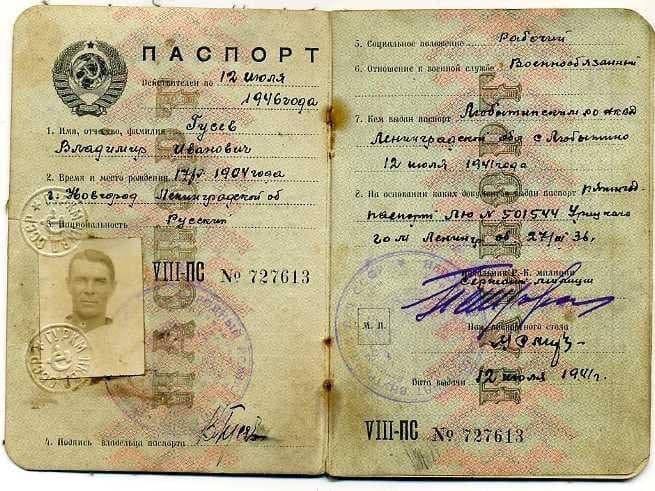 ПАСПОРТ
Действителен по 12 июля
1946 года
1. Имя, отчество, фамилия Гусев
Владимир Иванович
2. Время и место рождения 1904 года
г. Новгород Ленинградской об
3. Национальность Русский
VIII-ПС № 727613
4. Подпись владельца паспорта
5. Социальное положение Рабочий
6. Отношение к военной службе Военнообязанный
7. Кем выдан паспорт Любытинским РО НКВД
Ленинградской обл с Любытино
12 июля 1941 года
8. На основании каких документов выдан паспорт пятигод.
паспорт ЛЮ N 501544 Урицкого
го м Ленингр об 27/III 36.
Начальник Р.-К. милиции
Сержант милиции
М. П.
Нач. паспортного стола
Дата выдачи 12 июля 1941 г.
VIII-ПС № 727613